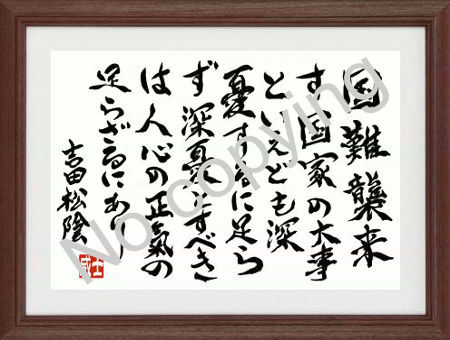 国難襲来
す国家の大事
といえども深
憂するに足ら
ず深憂とすべき
は人心の正氣の
足らざるにあり
吉田松陰
No copying